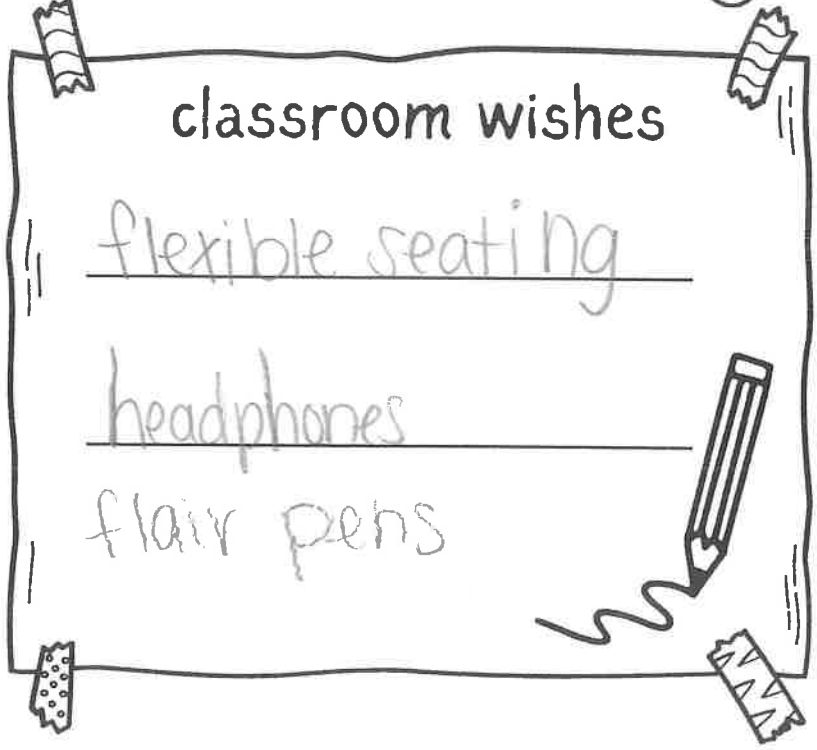 classroom wishes
flexible seating
headphones
flair pens